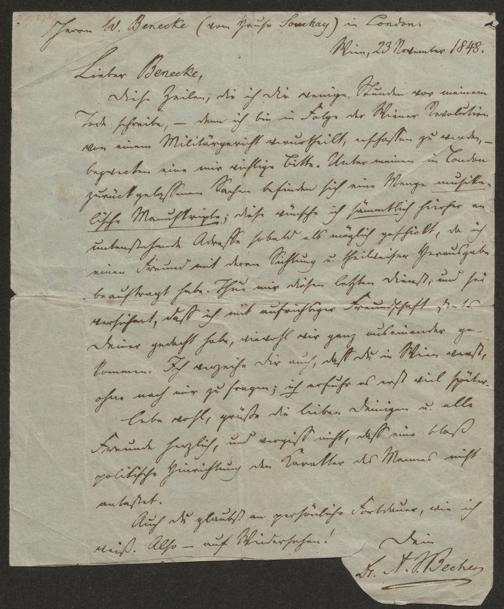 Herrn W. Benecke (vom Hause Souchay) in London.
Wien, 23 November 1848.
Lieber Benecke,
Diese Zeilen, die ich die wenige Stunden vor meinem
Tode schreibe, – denn ich bin in Folge der Wiener Revolution
von einem Militärgericht verurtheilt, erschossen zu werden, –
bezwecken eine mir wichtige Bitte. Unter meinen in London
zurückgelassenen Sachen befinden sich eine Menge musika-
lische Manuskripte; diese wünsche ich sämmtlich hierher an
untenstehende Adresse sobald als möglich geschickt, da ich
einen Freund mit deren Sichtung u theilweiser Herausgabe
beauftragt habe. Thue mir diesen letzten Dienst, und sei
versichert, daß ich mit aufrichtiger Freundschaft stets
Deiner gedacht habe, wiewohl wir ganz auseinander ge-
kommen. Ich verzeihe Dir auch, daß du in Wien warst,
ohne nach mir zu fragen; ich erfuhr es erst viel später.
Lebe wohl, grüße die lieben Deinigen u. alle
Freunde herzlich, und vergiß nicht, daß eine bloß
politische Hinrichtung den Karakter des Mannes nicht
antastet.
Auch du glaubst an persönliche Fortdauer, wie ich
weiß. Also – auf Wiedersehen!
Dein
Dr. A. J. Becher